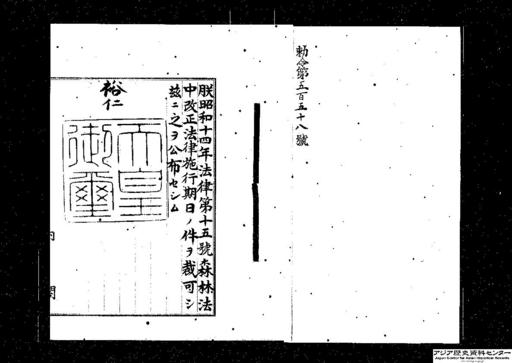 勅令第五百五十八號
朕昭和十四年法律第十五號森林法
中改正法律施行期日ノ件ヲ裁可シ
玆ニ之ヲ公布セシム
裕仁
天皇
御璽
内閣
アジア歴史資料センター
Japan Center for Asian Historical Records